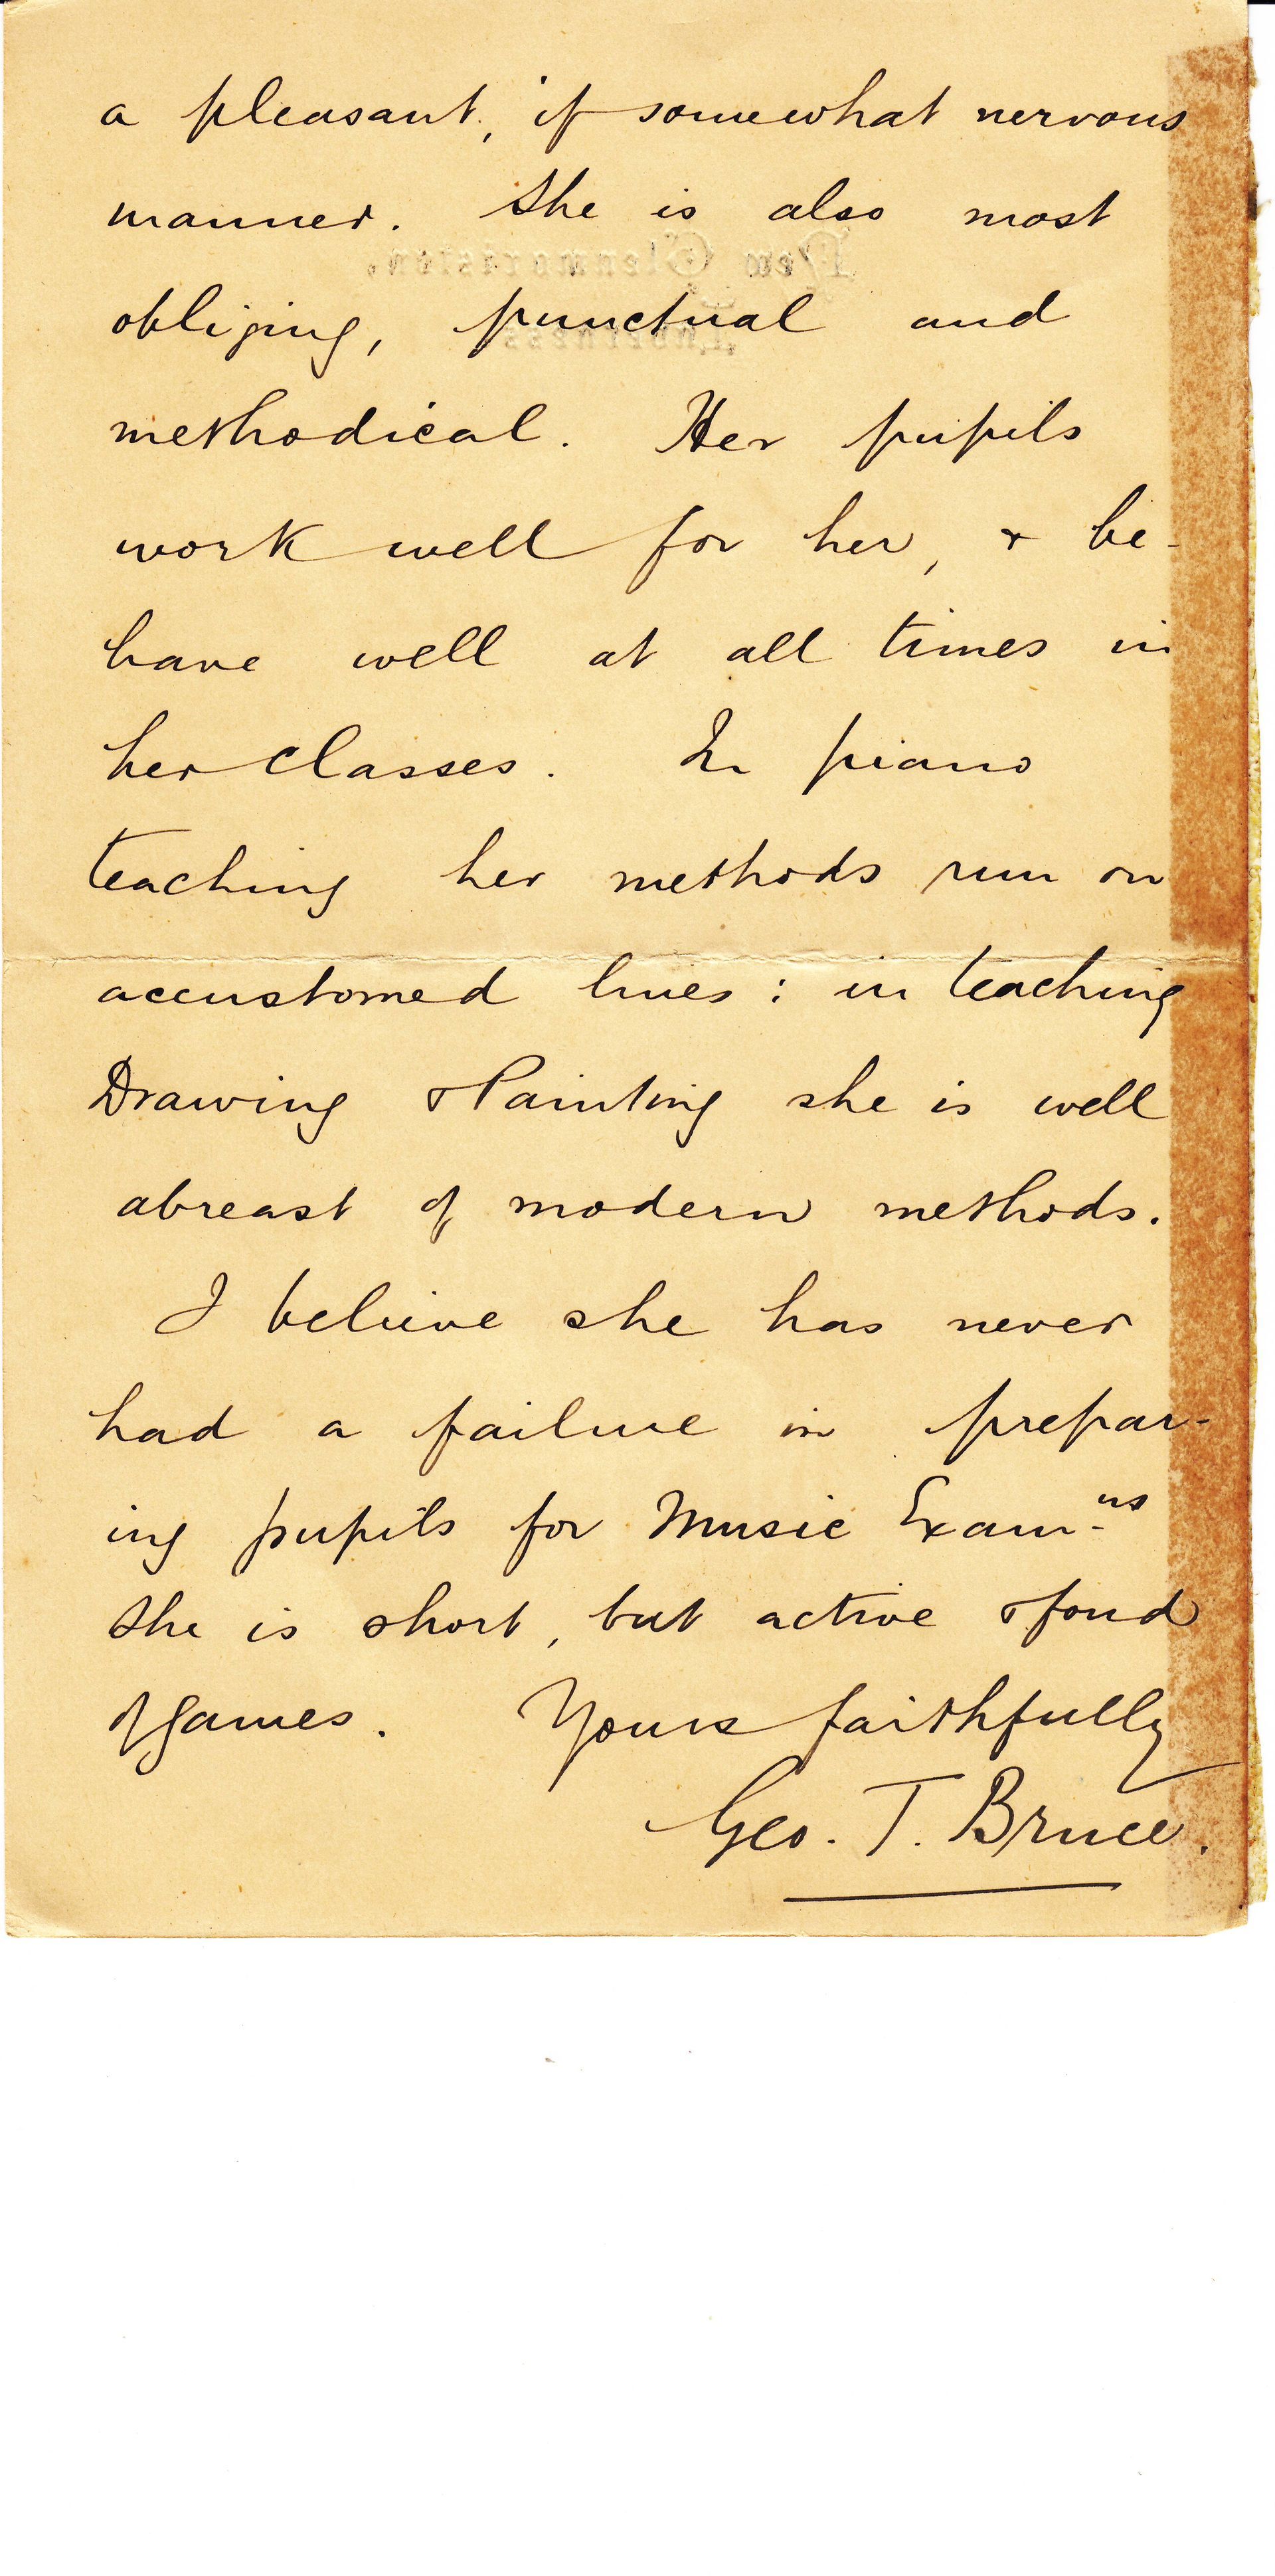 a pleasant, if somewhat nervous
manner. She is also most
obliging, punctual and
methodical. Her pupils
work well for her, & be-
have well at all times in
her classes. In piano
teaching her methods run on
accustomed lines: in teaching
Drawing & Painting she is well
abreast of modern methods.
I believe she has never
had a failure in prepar-
ing pupils for Music Exam-ns
She is short, but active & fond
of games. Yours faithfully
Geo. T. Bruce.